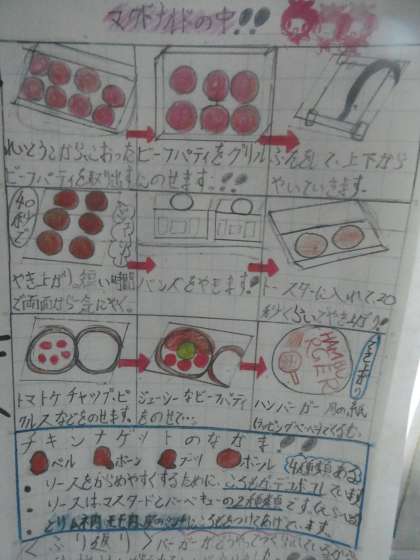 マクドナルドの中!!
れいとうこから、こおった
ビーフパティを取り出す
ビーフパティをグリル
にのせます。!!
ふたをして、上下から
やいていきます。
40
秒で
やき上がり。短い時間
で両面から一気にやく。
バンズをやきます!
トースターに入れて、20
秒くらいでやき上がり
トマトケチャップ、ピ
クルスなどをのせます。
ジューシーなビーフパティ
をのせて…
HAMBU
RGER
ハンバーガー用の紙
(ラッピングペーパー)でくるむ。
チキンナゲットのなかま!!
ベル
ボーン
ブーツ
ボール
4種類ある
ソースをからめやすくするために、ころもがデコボコしています
ソースはマスタードとバーベキューの2種類です。
ころもをつけてあげています。
<ふり返り>